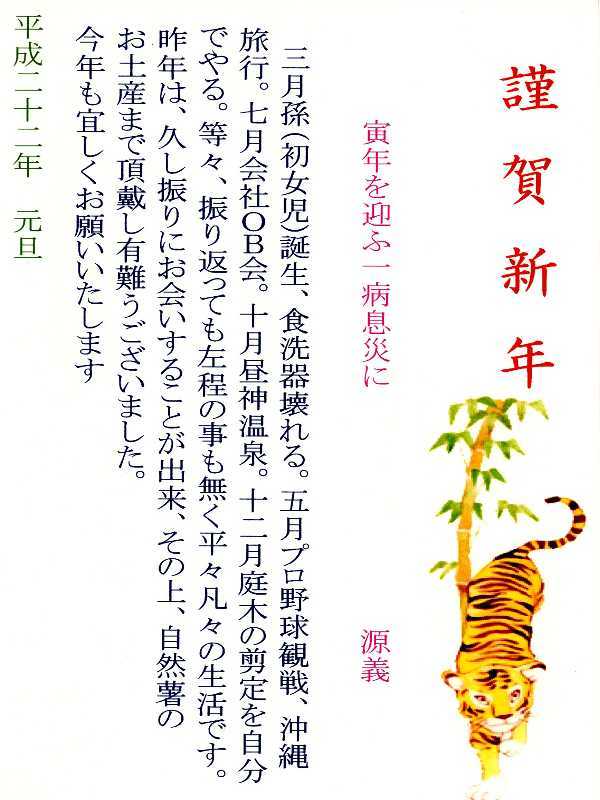 謹賀新年
寅年を迎ふ一病息災に　源義
三月孫（初女児）誕生、食洗器壊れる。五月プロ野球観戦、沖縄
旅行。七月会社ＯＢ会。十月昼神温泉。十二月庭木の剪定を自分
でやる。等々、振り返っても左程の事も無く平々凡々の生活です。
昨年は、久し振りにお会いすることが出来、その上、自然薯の
お土産まで頂戴し有難うございました。
今年も宜しくお願いいたします
平成二十二年　元旦